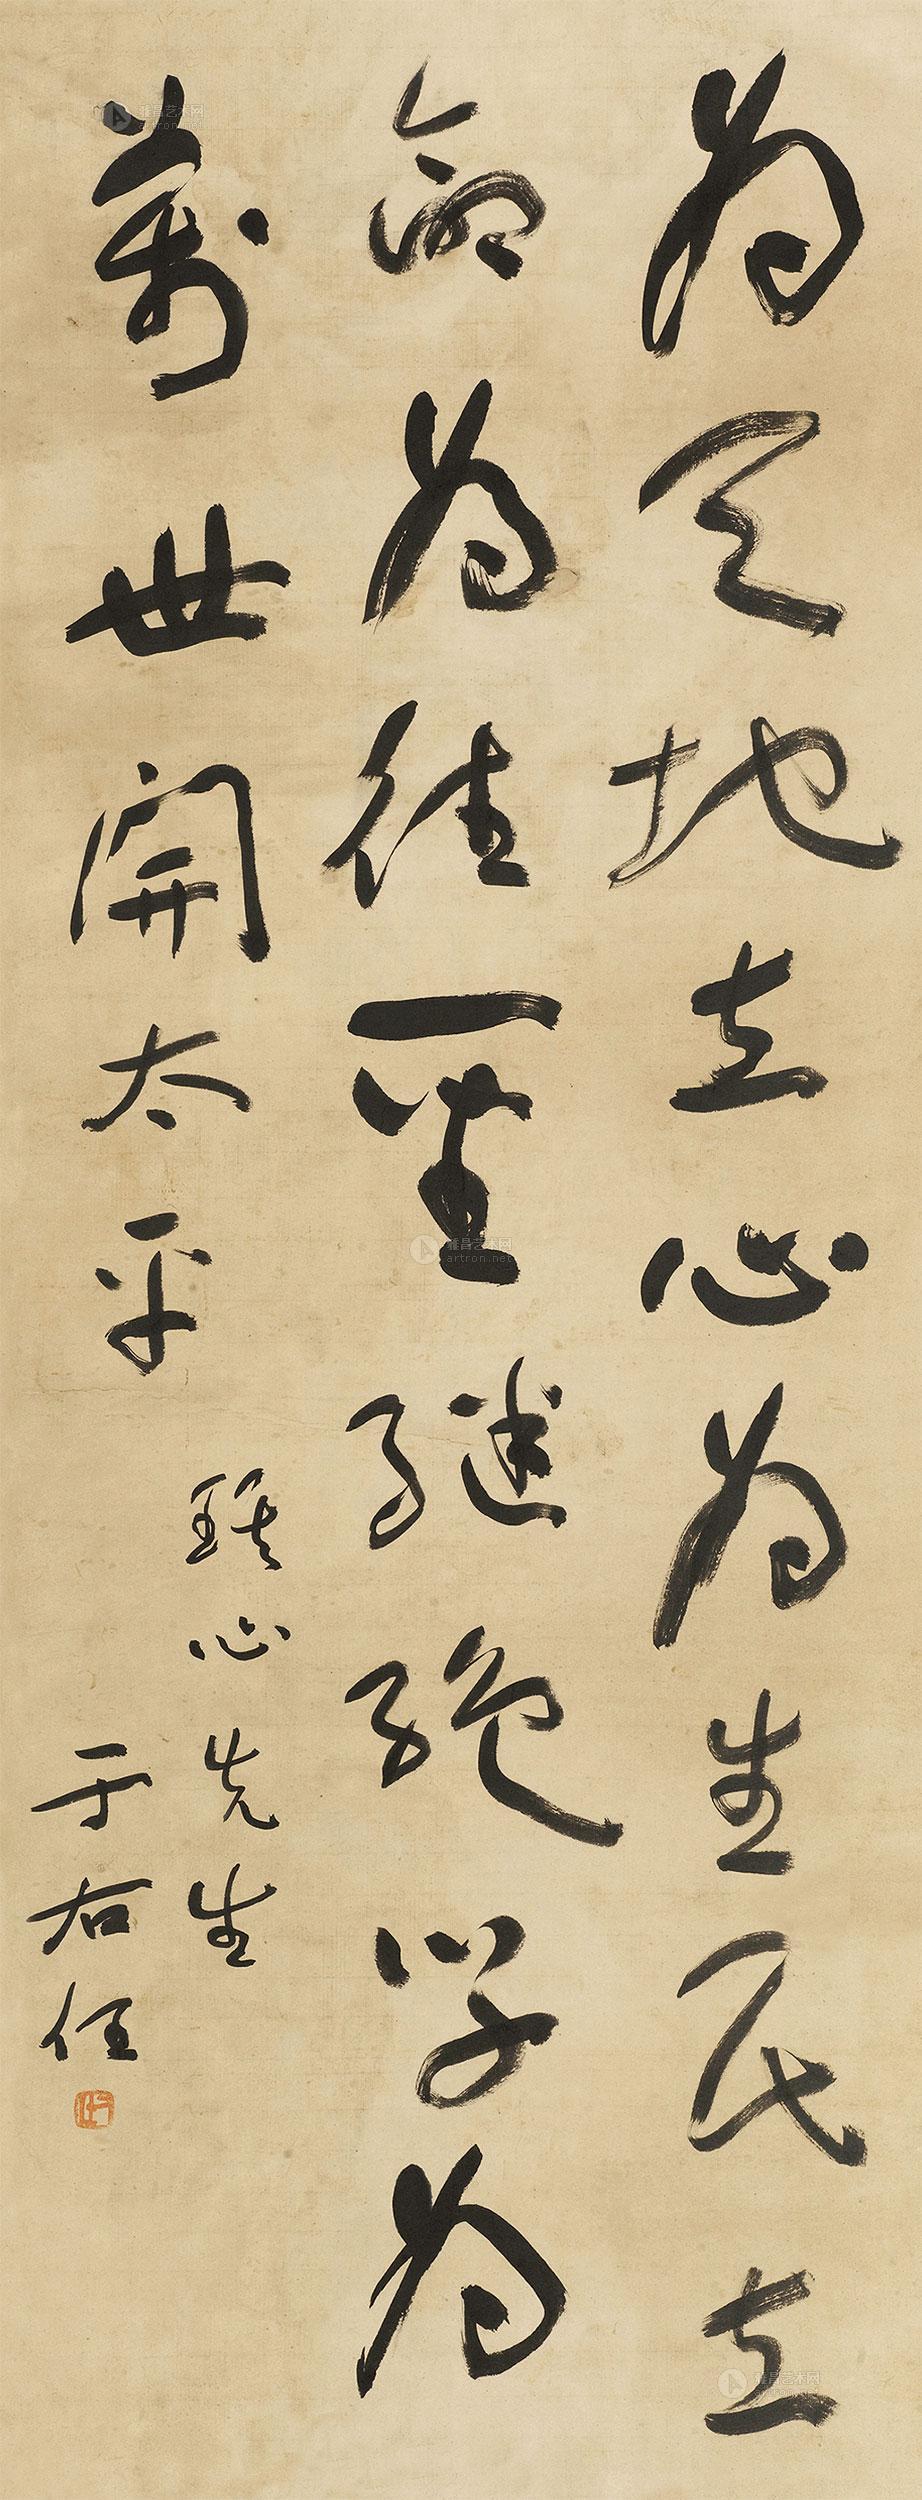 為天地立心為生民立
命為往聖繼絕學為
萬世開太平
心先生
于右任
雅昌艺术网
artron.net